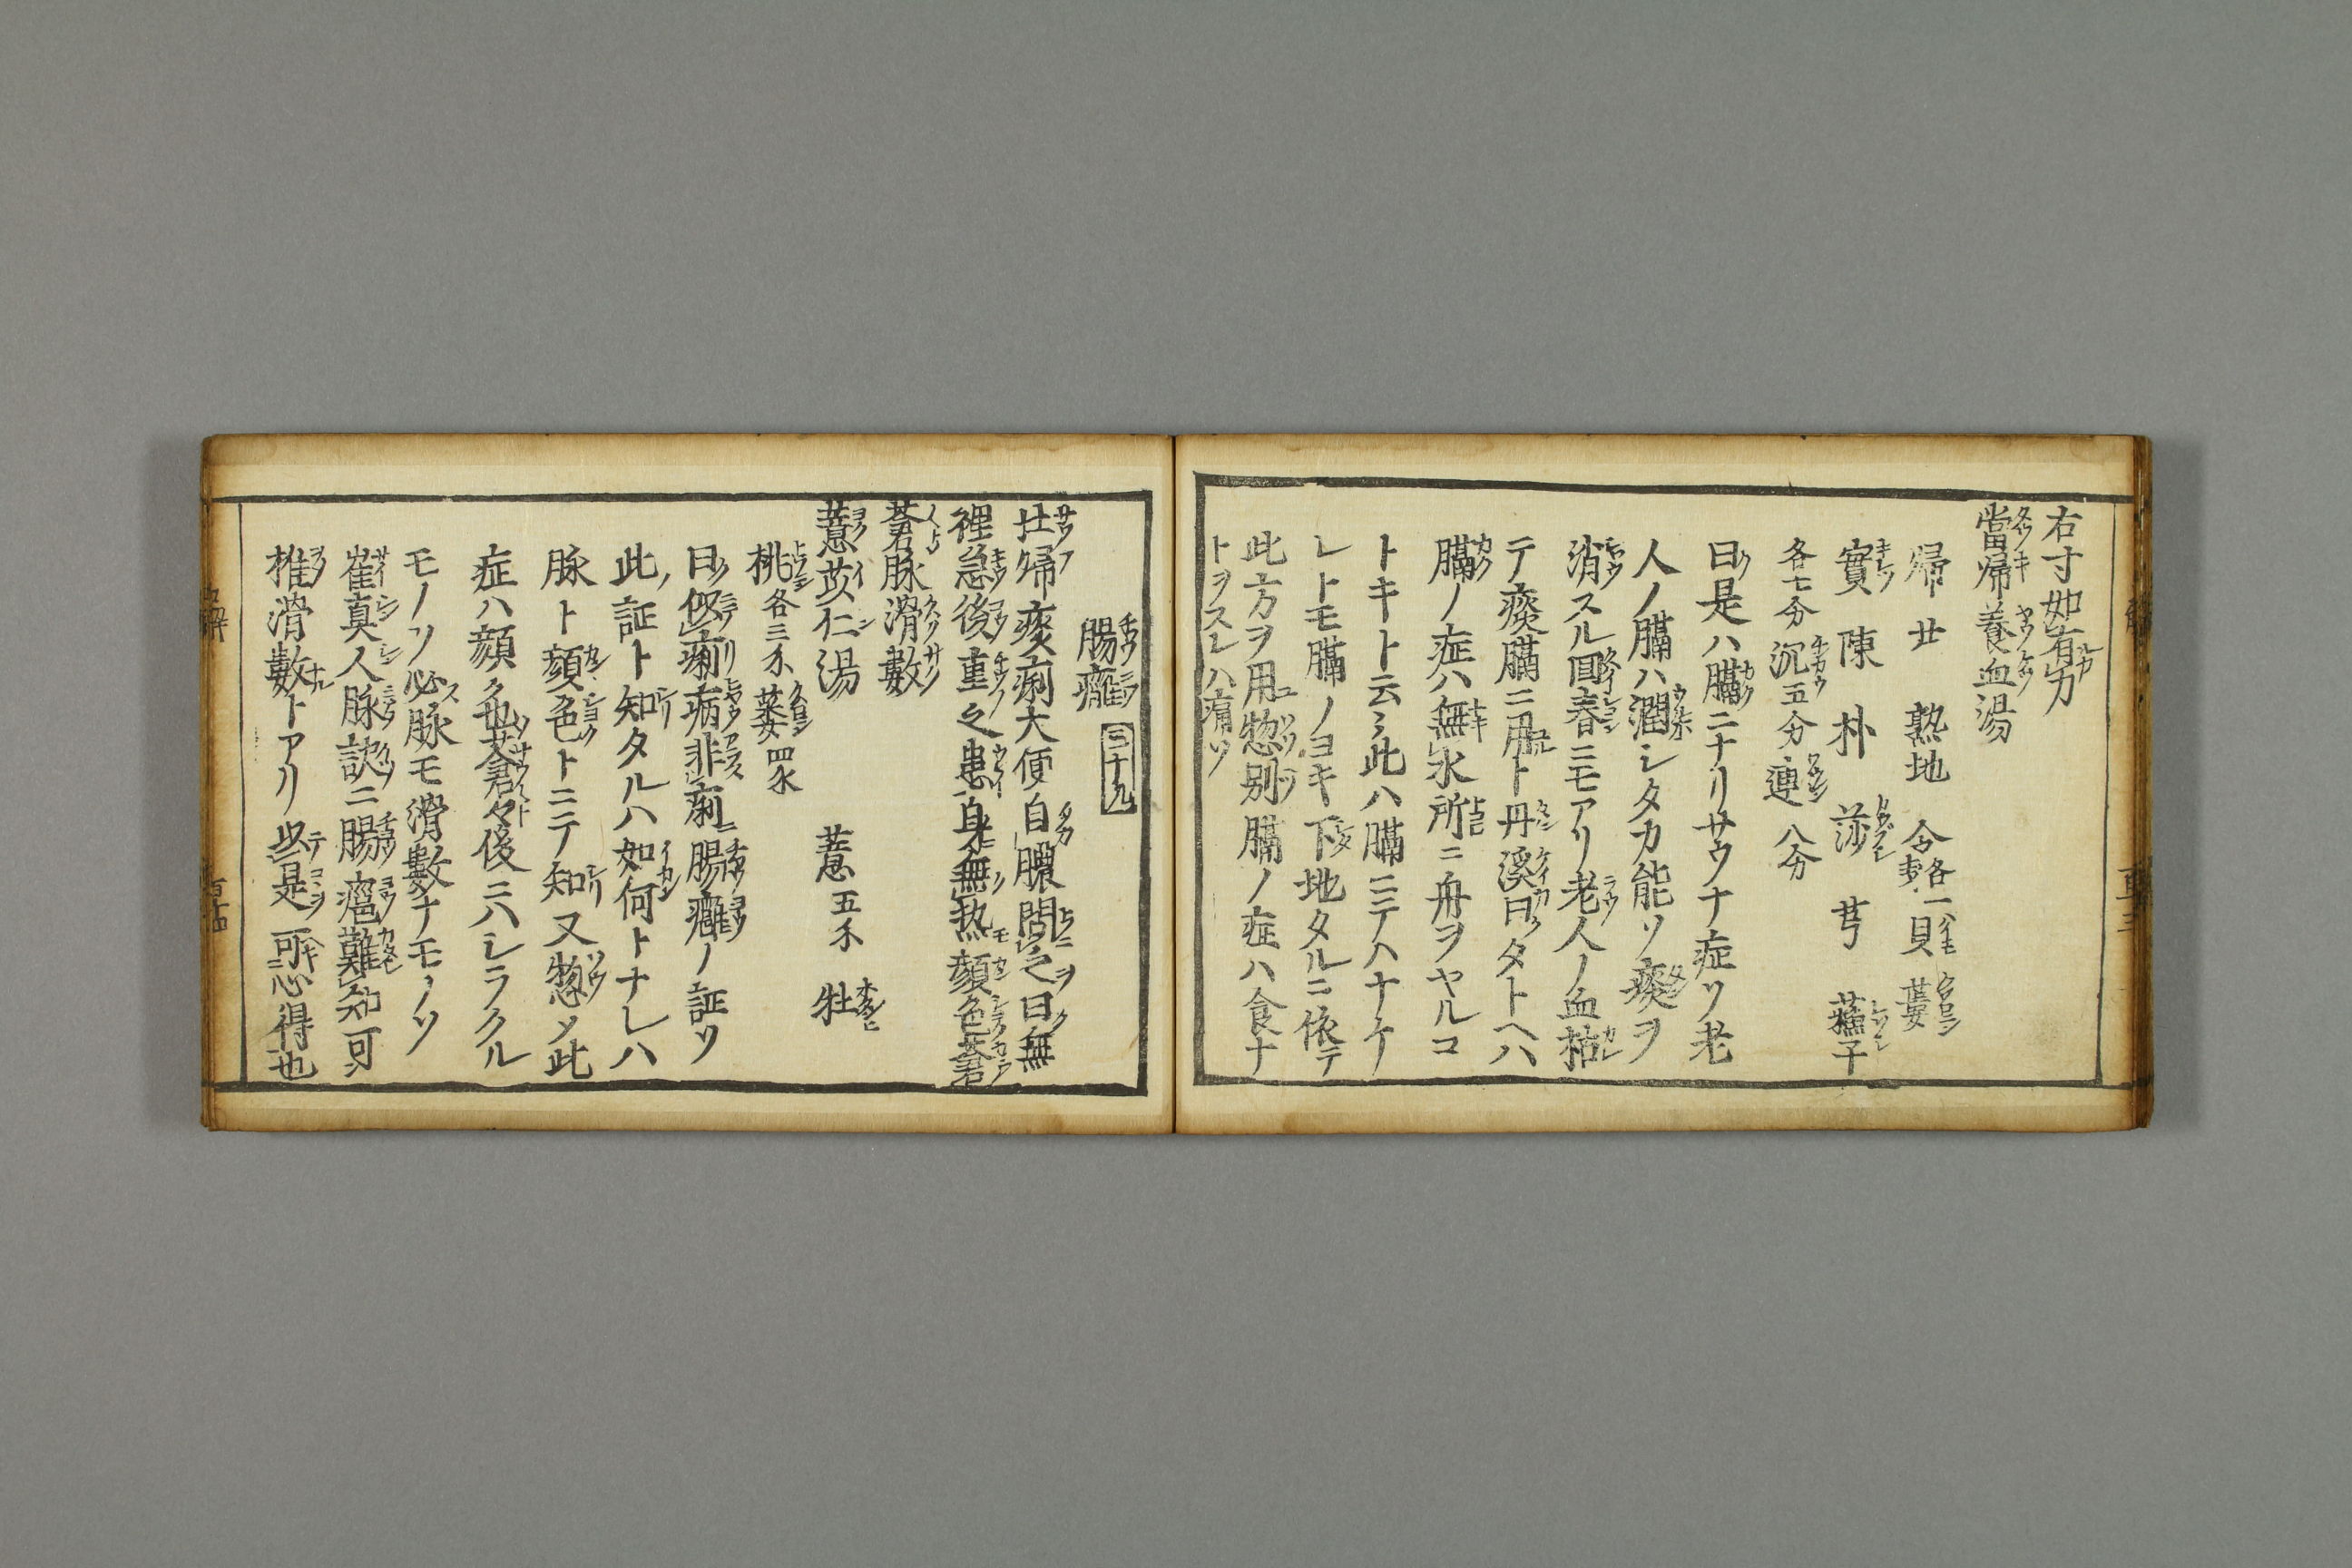 右寸如有力
當帰養血湯
帰 芍 熟地 各一 貝 蔞
實 陳 朴 莎 芎 蘓子
各七分 沉五分 連八分
曰是ハ膈ニナリサウナ症ソ老
人ノ膈ハ潤シタカ能ソ痰ヲ
消スル回春ニモアリ老人ノ血枯
テ痰膈ニ用ト丹溪曰タトヘハ
膈ノ症ハ無水所ニ舟ヲヤルコ
トキト云々此ハ膈ニテハナケ
レトモ膈ノヨキ下地タルニ依テ
此方ヲ用惣別膈ノ症ハ食ナ
トヲスレハ痛ソ
腸癰 三十九
壮帰痰痢大便自膿問之曰無
裡急後重之患身無热顔色蒼
蒼脉滑數
薏苡仁湯 薏五分 牡
桃各三分 蔞四分
曰似痢病非痢腸癰ノ証ソ
此証ト知タルハ如何トナレハ
脉ト顔色トニテ知又惣〆此
症ハ顔色蒼々後ニハシラクル
モノソ必脉モ滑數ナモノソ
崔真人脉訣ニ腸癰難知可
推滑數トアリ以是可心得也